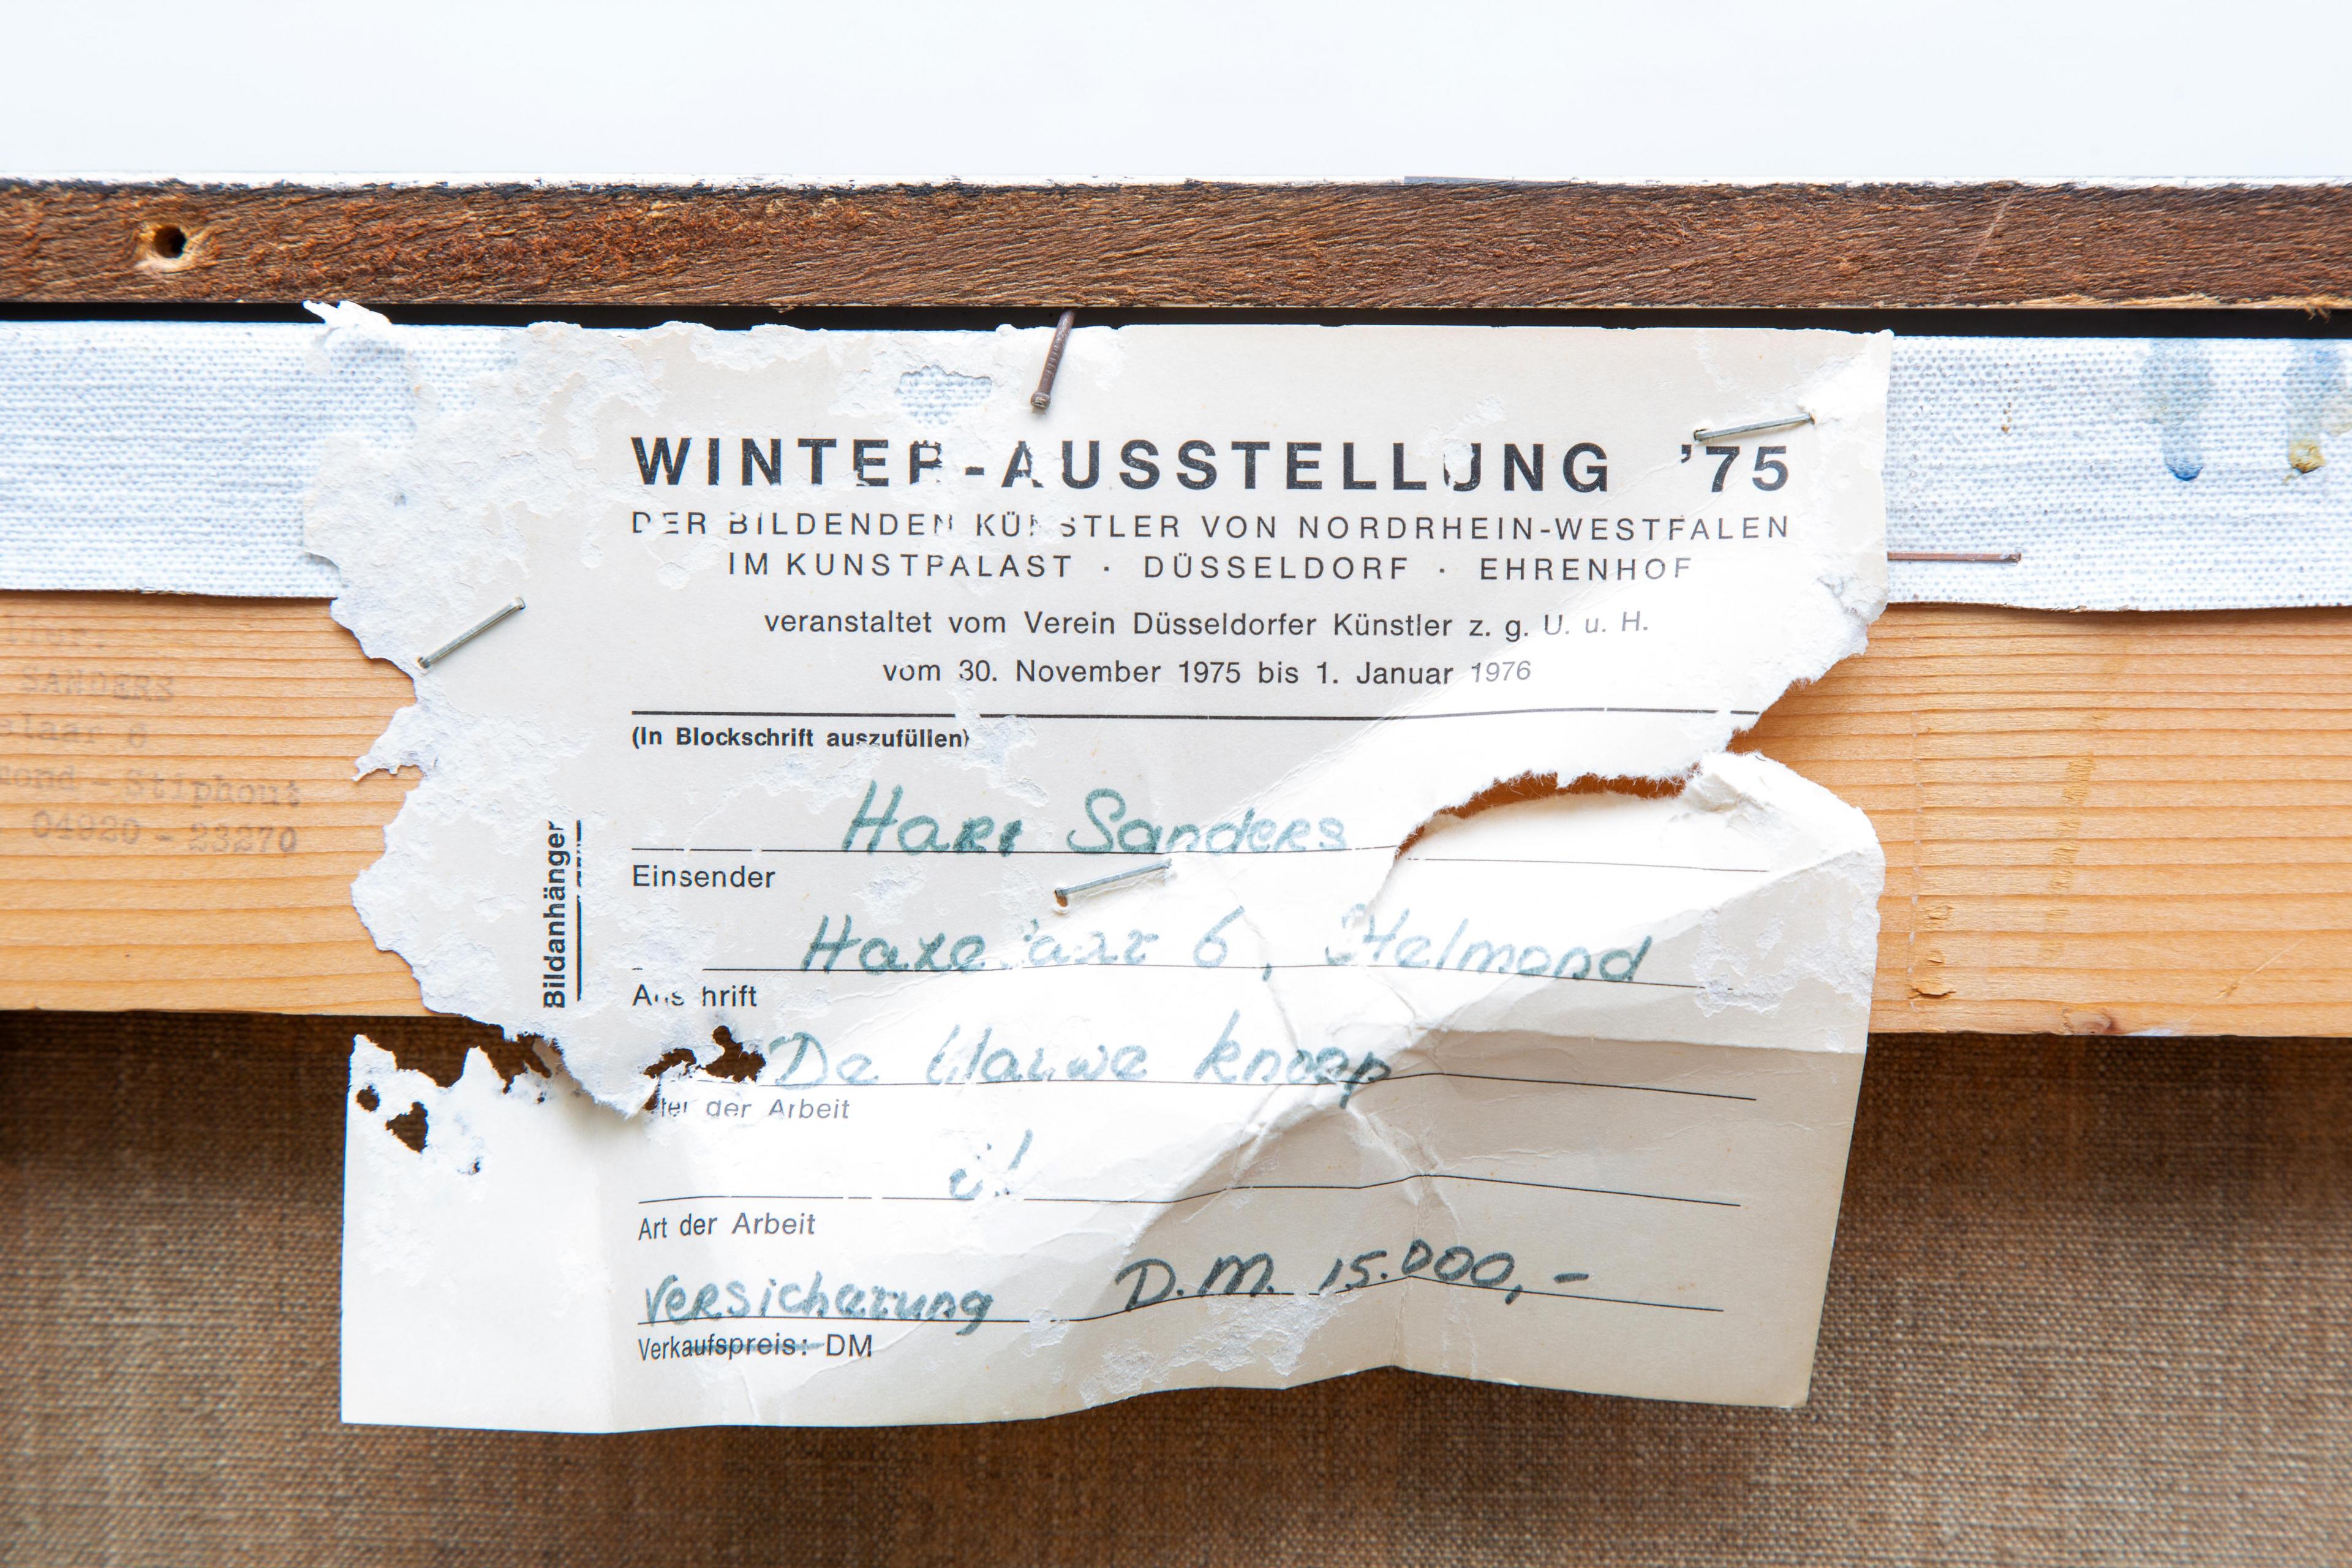 WINTER-AUSSTELLUNG '75
DER BILDENDEN KÜNSTLER VON NORDRHEIN-WESTFALEN
IM KUNSTPALAST · DÜSSELDORF · EHRENHOF
veranstaltet vom Verein Düsseldorfer Künstler z. g. U. u. H.
vom 30. November 1975 bis 1. Januar 1976
(In Blockschrift auszufüllen)
Bildanhänger
Harr Sanders
Einsender
Hazelaar 6, Helmond
Anschrift
De blauwe knoop
der Arbeit
öl
Art der Arbeit
Versicherung D.M. 15.000,-
Verkaufspreis: DM
SANDERS
elaar 6
mond - Stiphout
04920 - 23270